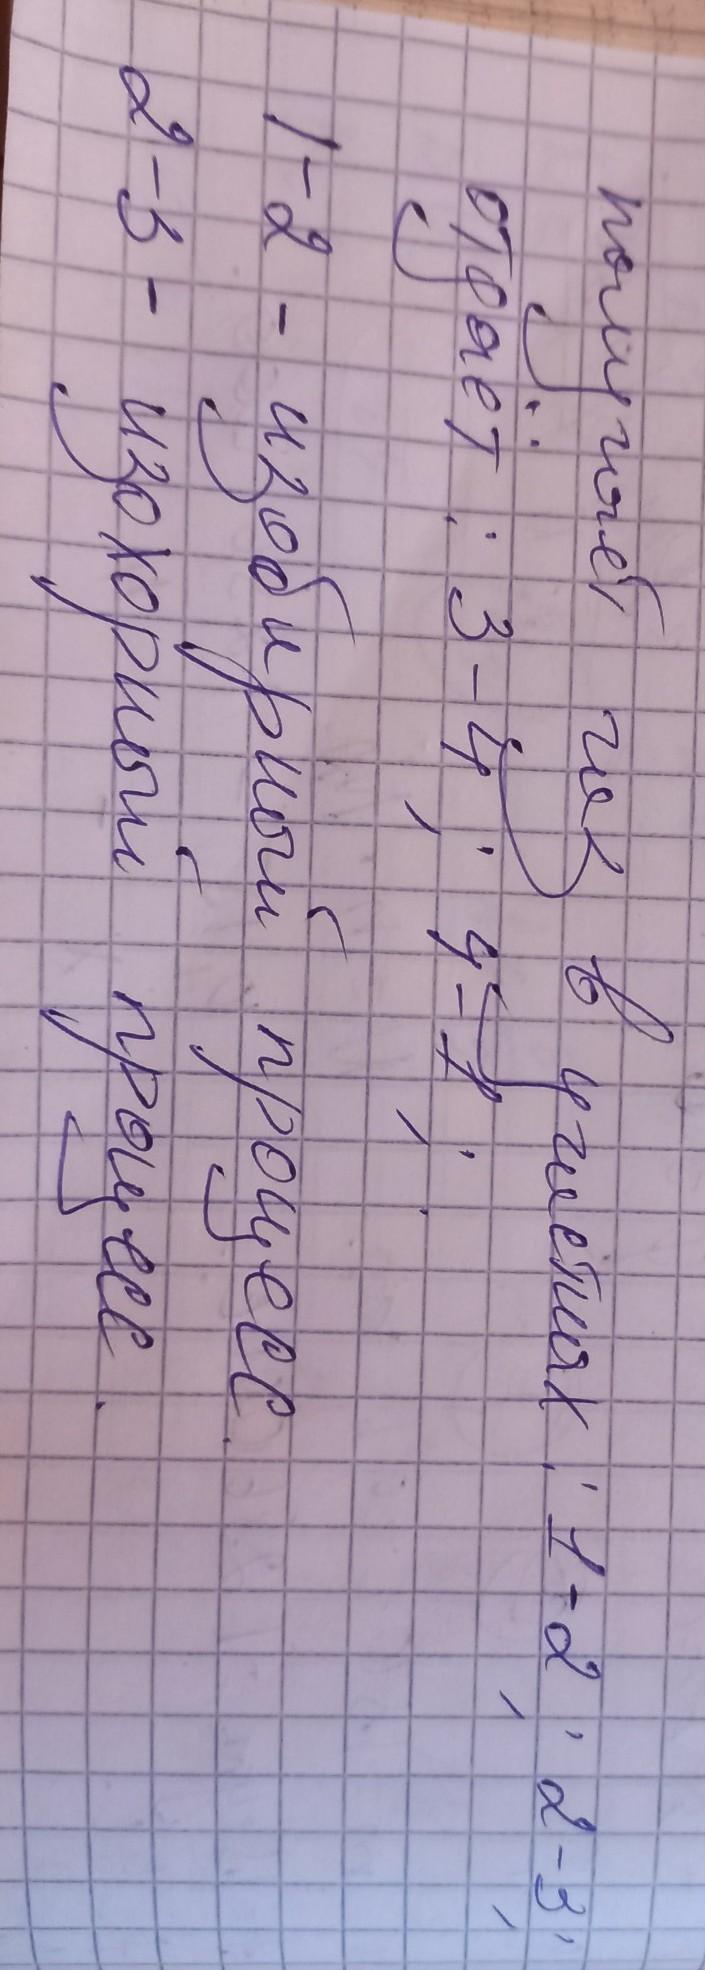 получает газ в участках: 1-2; 2-3;
отдаёт: 3-4; 4-1;
1-2 - изобарный процесс.
2-3 - изохорный процесс.